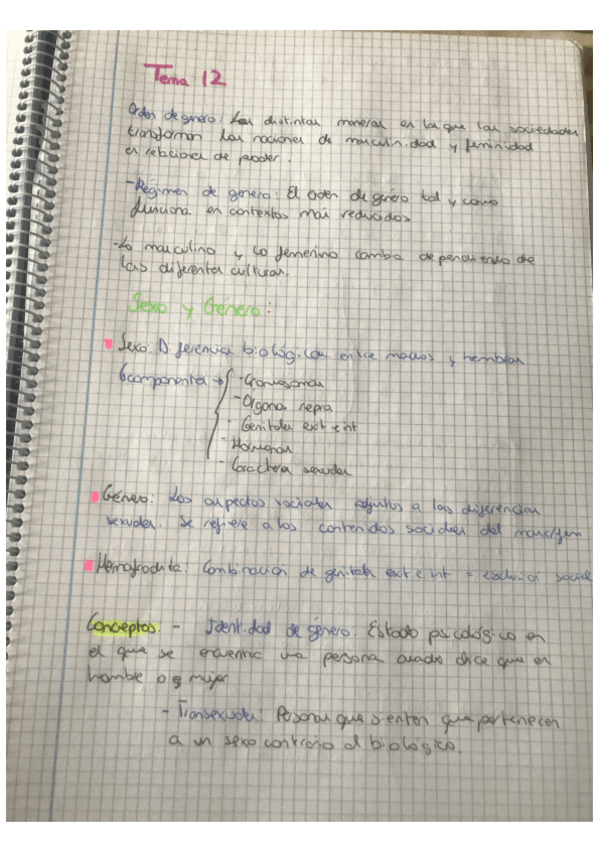 Tema 12
Orden de genero: Las distintas maneras en la que las sociedades
transforman las nociones de masculinidad y feminidad
en relaciones de poder.
-Régimen de genero: El orden de género tal y como
funciona en contextos más reducidos
-Lo masculino y lo femenino cambia dependiendo de
las diferentes culturas.
Sexo y Género:
Sexo: Diferencias biológicas entre machos y hembras
componentes → - Cromosomas
- Organos repro
- Genitales ext e int
- Hormonas
- Caracteres sexuales
Género: Los aspectos sociales adjuntos a las diferencias
sexuales. Se refiere a los contenidos sociales del masc/fem
Hemafrodita: Combinación de genitales ext e int = exclusion social
Conceptos: - Identidad de género: Estado psicológico en
el que se encuentra una persona cuando dice que es
hombre o es mujer
- Transexuales: Personas que sienten que pertenecen
a un sexo contrario al biológico.